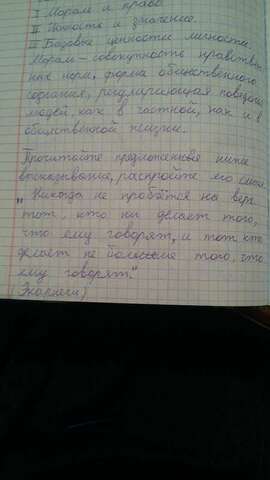 I Мораль и право
II Понятие и значение.
III Базовые ценности личности.
Мораль - совокупность нравствен
ных норм, форма общественного
сознания, регулирующая поведение
людей как в частной, так и в
общественной жизни.
Прочитайте предложенное ниже
высказывание, раскройте его смысл.
"Никогда не пробьётся на верх
тот, кто ни делает того,
что ему говорят, и тот кто
делает не больше того, что
ему говорят."
(Э.Карнеги)